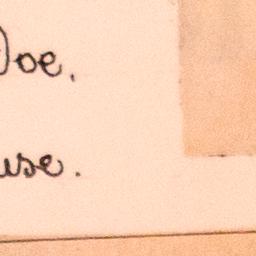 Doe.
use.